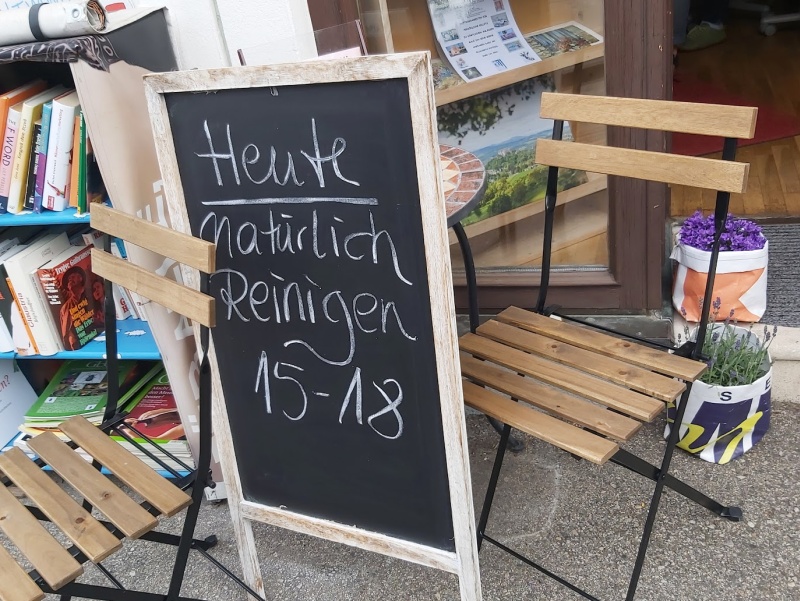 Heute
Natürlich
Reinigen
15-18